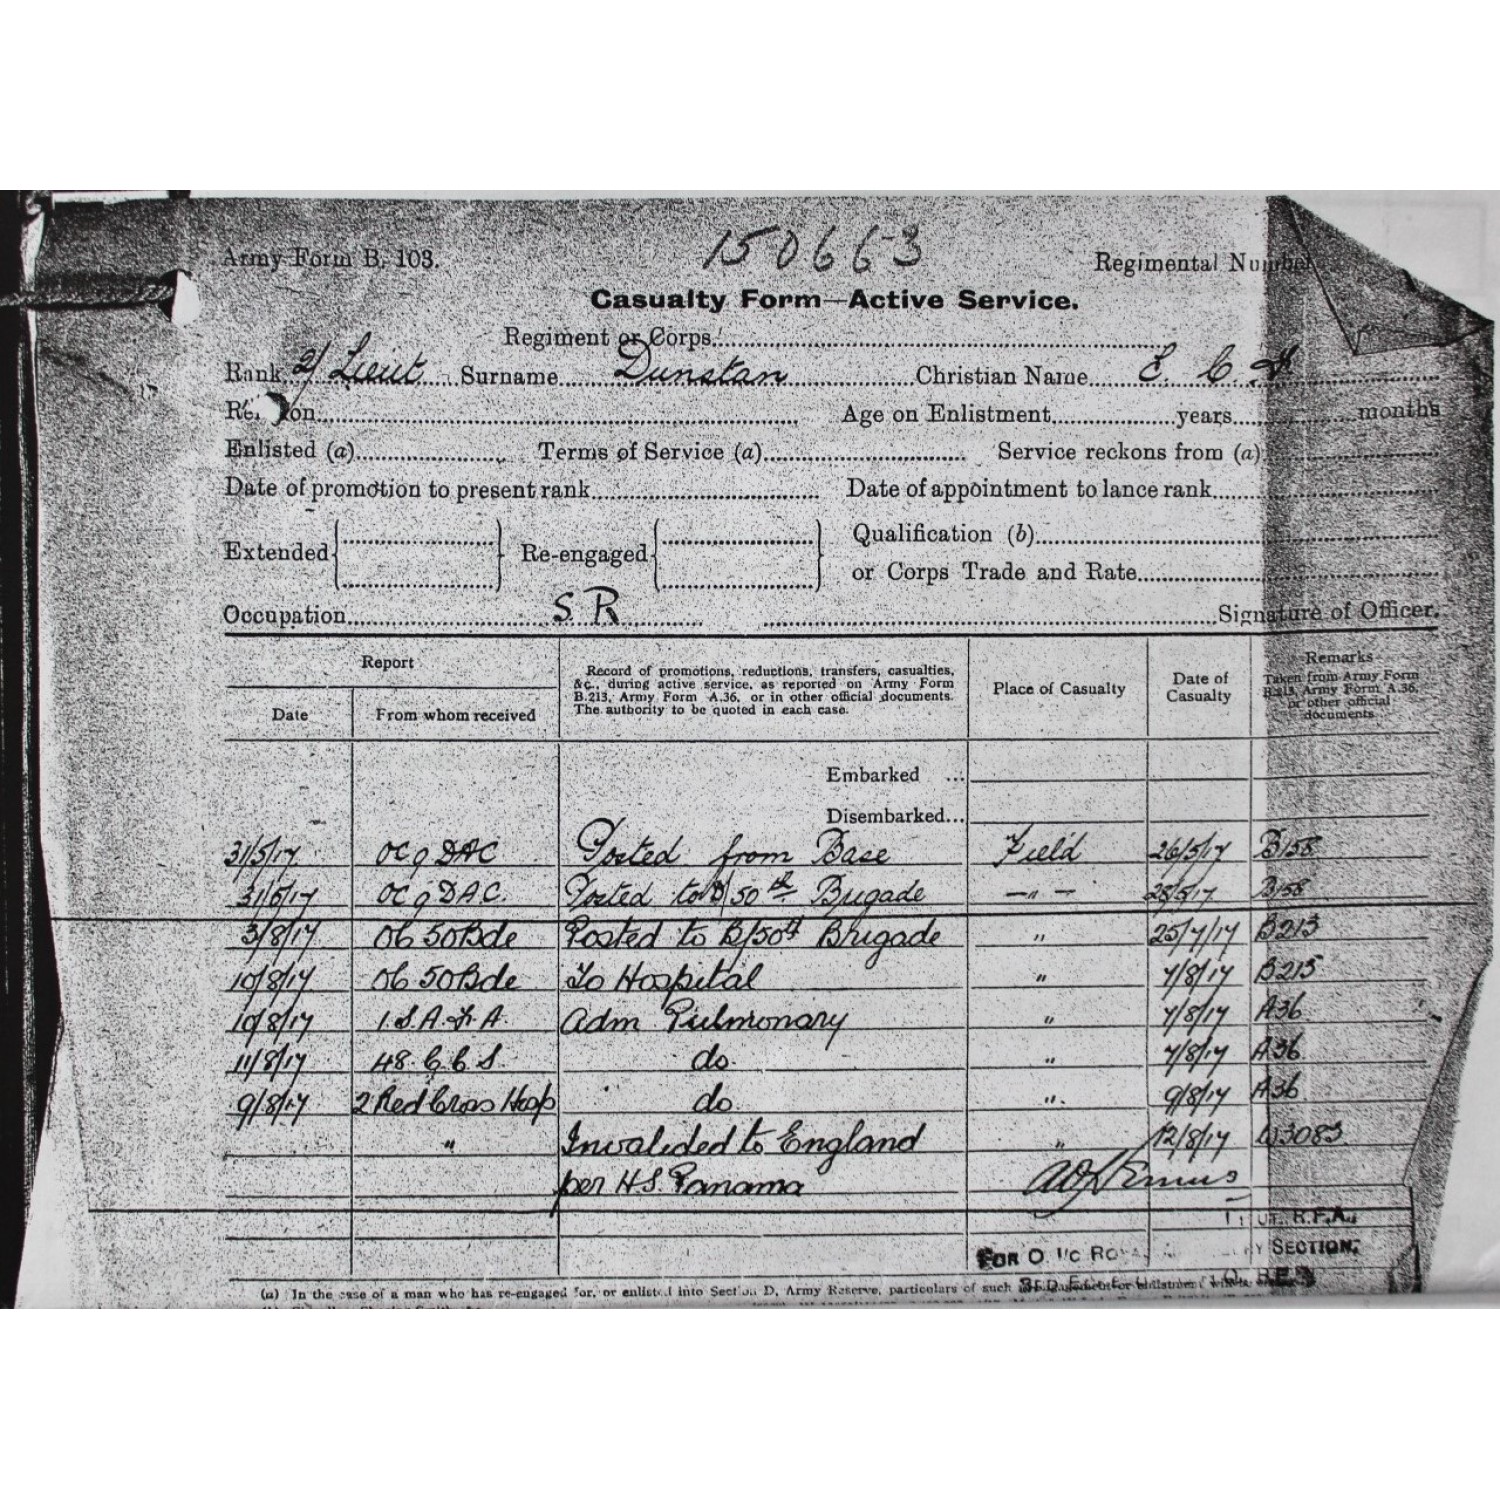 150663
Army Form B. 103.
Regimental Number
Casualty Form—Active Service.
Regiment or Corps
Rank 2/Lieut Surname Dunstan Christian Name E. C.
Age on Enlistment years months
Enlisted (a) Terms of Service (a) Service reckons from (a)
Date of promotion to present rank Date of appointment to lance rank
Extended Re-engaged Qualification (b)
or Corps Trade and Rate
Occupation S R Signature of Officer.
Report
Date From whom received
Record of promotions, reductions, transfers, casualties,
&c., during active service, as reported on Army Form
B.213, Army Form A.36, or in other official documents.
The authority to be quoted in each case.
Place of Casualty
Date of
Casualty
Remarks
Taken from Army Form
B.213, Army Form A.36,
or other official
documents
Embarked ...
Disembarked...
31/5/17 OC 9 DAC Posted from Base Field 26/5/17 B158
31/5/17 OC 9 DAC. Posted to 50th Brigade —"— 28/5/17 B158
3/8/17 OC 50 Bde Posted to B/50th Brigade " 25/7/17 B213
10/8/17 OC 50 Bde To Hospital " 7/8/17 B213
10/8/17 1. S. A. F. A. Adm Pulmonary " 7/8/17 A36
11/8/17 48. C. C. S. do. " 7/8/17 A36
9/8/17 2 Red Cross Hosp do. " 9/8/17 A36
" Invalided to England " 12/8/17 3083
per H.S. Panama
R.F.A.,
FOR O. I/C SECTION,
(a) In the case of a man who has re-engaged for, or enlisted into Section D, Army Reserve, particulars of such